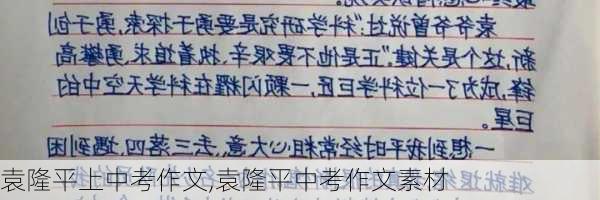 袁爷爷曾说过:"科学研究是要勇于探索,勇于创
新,这个是关键。"正是他不畏艰辛、执着追求、勇攀高
锋,成为了一位科学巨匠,一颗闪耀在科学天空中的
巨星。
一想到我平时经常粗心大意,丢三落四,遇到困
难就
袁隆平上中考作文,袁隆平中考作文素材